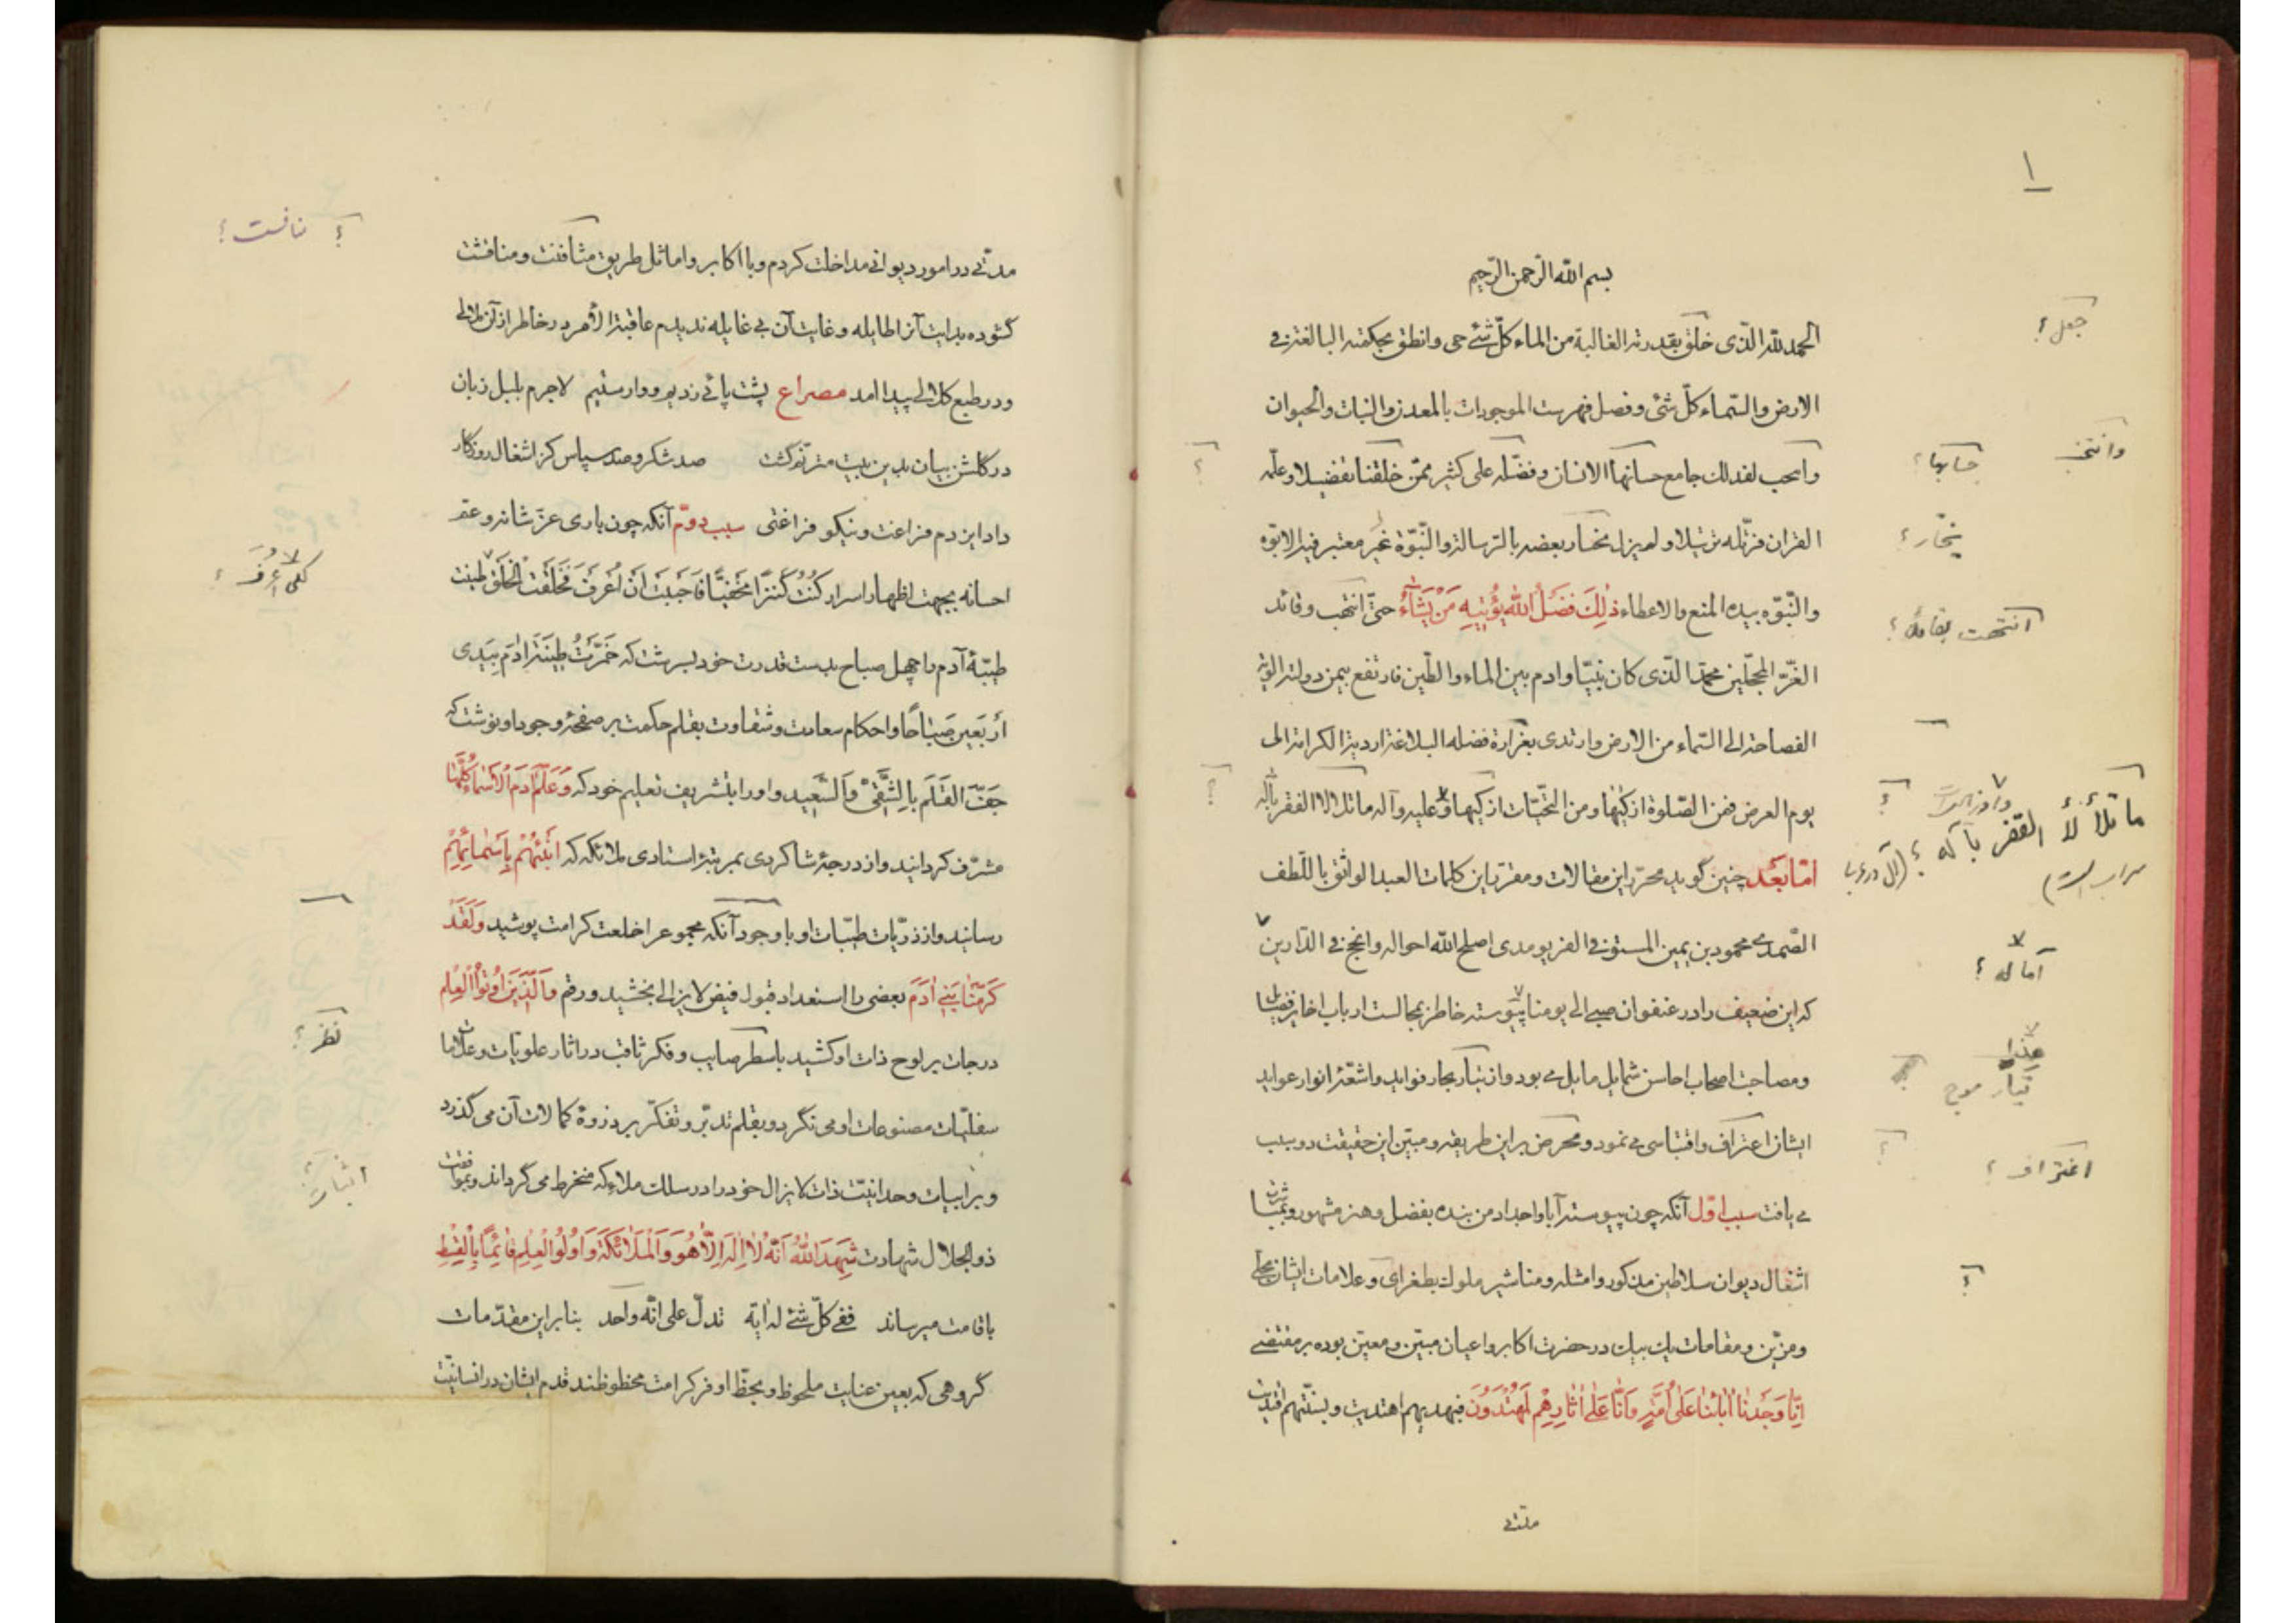 ۱
بسم الله الرّحمن الرّحیم
الحمد لله الّذی خلق بقدرته الغالبة من الماء کلّ شیٔ حی وانطق بحکمته البالغة فی
جعل؟
الارض والسّماء کلّ شیٔ وفصل فهرست الموجودات بالمعدن والنبات والحیوان
جامع حسابها الانسان وفضّله علی کثیر ممّن خلقنا تفضیلا وعلّمه
حسابها؟
القران فرتّله ترتیلا ولم یزل بعضه بالرسالة والنّبوّة غیر معتبر فیه الابوّه
والنّبوّه بیده المنع والاعطاء ذٰلِكَ فَضْلُ اللّٰهِ یُؤْتِیهِ مَنْ یَشَآءُ حتّی انتخب وقائد
الغرّ المحجّلین محمّدا الّذی کان نبیّا وادم بین الماء والطّین فارتفع بیمن دولته
الفصاحة الی السّماء من الارض وارتدی بغزارة فضله البلاغة اردیة الکرامة الی
یوم العرض فمن الصّلوة ازکیها ومن التحیّات ازکیها وعلیه وآله
ما تلألأ القفر بآله؟
امّا بعد چنین گوید محرّر این مقالات ومقرّر این کلمات العبد الواثق باللّطف
الصّمدی محمود بن یمین المستوفی الفریومدی اصلح الله احواله وانجح فی الدّارین
آماله؟
که این ضعیف را در عنفوان صبی الی یومنا پیوسته خاطر بمجالست ارباب
ومصاحبت اصحاب احاسن شمایل مایل می بود واز تیار بحار فواید واشعّهٔ انوار عواید
تیار موج
ایشان اعتراف واقتباسی می نمود ومحرض بر این طریقه ومبیّن این حقیقت دو سبب
اغتراف؟
می یافت سبب اوّل آنکه چون پیوسته آبا واجداد من بنده بفضل وهنر مشهور
اشغال دیوان سلاطین مذکور وامثله ومناشیر ملوك بطغرای وعلامات ایشان محلّی
ومزیّن ومقامات یك بیك در حضرت اکابر واعیان مبیّن ومعیّن بوده بر مقتضی
اِنّا وَجَدْنٰا اٰبٰائَنٰا عَلٰی اُمَّةٍ وَاِنّٰا عَلٰی اٰثٰارِهِم لَمُهْتَدُونَ فبهدیهم اهتدیت وبسنّتهم اقتدیت
مدّتی
مدّتی در امور دیوانی مداخلت کردم وبا اکابر واماثل طریق مثافنت ومنافثت
نافست؟
گشوده بدایت آنرا طایله وغایت آن بی غایله ندیدم عاقبة الأمر در خاطر از آن ملالی
ودر طبع کلالی پیدا امد مصراع پشت پائی زدیم ووارستیم لاجرم بلبل زبان
در گلشن بیان بدین بیت مترنّم گشت صد شکر وصد سپاس کز اشغال روزگار
داد ایزدم فراغت ونیکو فراغتی سبب دوّم آنکه چون باری عزّ شانه وعمّ
احسانه بجهت اظهار اسرار کُنْتُ کَنْزًا مَخْفِیًّا فَاَحْبَبْتُ اَنْ اُعْرَفَ فَخَلَقْتُ الْخَلْقَ طینت
لکی أُعرَف؟
طیبّهٔ آدم را چهل صباح بدست قدرت خود بسرشت که خَمَّرْتُ طِینَةَ اٰدَمَ بِیَدِی
اَرْبَعِینَ صَبٰاحًا واحکام سعادت وشقاوت بقلم حکمت بر صفحهٔ وجود او نوشت که
جَفَّ القَلَم بِالشَّقِیِّ وَالسَّعِید واورا بتشریف تعلیم خود که وَعَلَّمَ اٰدَمَ الْاَسْمٰاءَ کُلَّهٰا
مشرّف گردانید واز درجهٔ شاگردی بمرتبهٔ استادی ملائکه که اَنْبِئْهُمْ بِاَسْمٰائِهِمْ
رسانید واز ذرّیات طیبّات او با وجود آنکه مجموع را خلعت کرامت پوشید وَلَقَدْ
کَرَّمْنٰا بَنِی اٰدَمَ بعضی را استعداد قبول فیض لایزالی بخشید ورقم وَالَّذِینَ اُوتُوا الْعِلْم
درجات بر لوح ذات او کشید باسطر صایب وفکر ثاقب در اثار علویات وعلامات
نظر؟
سفلیّات مصنوعات او می نگرد وبقلم تدبّر وتفکّر بر ذروهٔ کمالات آن می گذرد
وبر ابیات وحدانیّت ذات لایزال خود را در سلك ملائکه منخرط می گرداند وبموافقت
اثبات؟
ذو الجلال شهادت شَهِدَ اللّٰهُ اَنَّهُ لٰا اِلٰهَ اِلّٰا هُوَ وَالْمَلٰائِکَةُ وَاُولُوا الْعِلْمِ قٰائِمًا بِالْقِسْطِ
باقامت میرساند ففی کلّ شیٔ له اٰیة تدلّ علی انّه واحد بنابر این مقدّمات
گروهی که بعین عنایت ملحوظ وبحظّ اوفر کرامت محظوظند قدم ایشان در انسانیّت